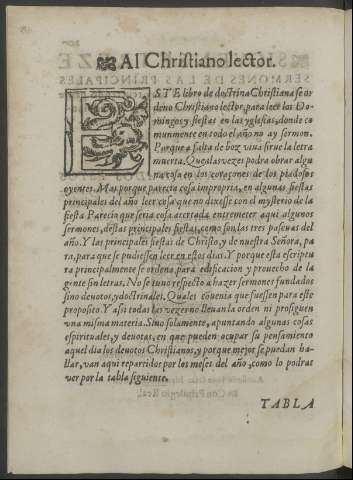 Al Christiano lector.
ESTE libro de doctrina Christiana se or
deno Christiano lector, para leer los Do-
mingos y fiestas en las yglesias, donde co
munmente en todo el año no ay sermon.
Porque a falta de boz viua sirue la letra
muerta. Que a las vezes podra obrar algu
na cosa en los coraçones de los piadosos
oyentes. Mas porque parecia cosa impropria, en algunas fiestas
principales del año leer cosa que no dixesse con el mysterio de la
fiesta Parecio que seria cosa acertada entremeter aqui algunos
sermones, destas principales fiestas, como son las tres pascuas del
año. Y las principales fiestas de Christo, y de nuestra Señora, pa
ra, para que se pudiessen leer en estos dias. Y porque esta escriptu
ra principalmente se ordena para edificacion y prouecho de la
gente sin letras. No se tuuo respecto a hazer sermones fundados
sino deuotos, y doctrinales. Quales conuenia que fuessen para este
proposito. Y assi todas las vezes no lleuan la orden ni prosiguen
vna misma materia. Sino solamente, apuntando algunas cosas
espirituales, y deuotas, en que pueden ocupar su pensamiento
aquel dia los deuotos Christianos, y porque mejor se puedan ha-
llar, van aqui repartidos por los meses del año, como lo podrar
ver por la tabla siguiente.
TABLA